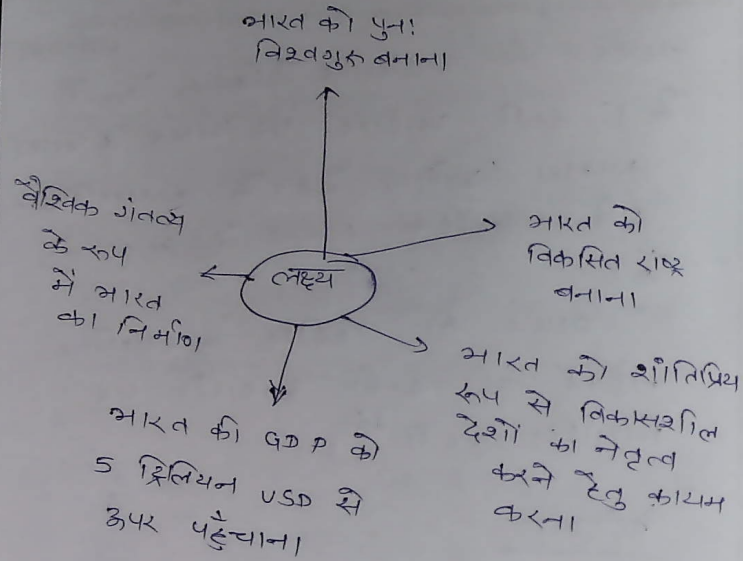 भारत को पुन:
विश्वगुरू बनाना
वैश्विक गंतव्य
के रूप
में भारत
का निर्माण
लक्ष्य
भारत को
विकसित राष्ट्र
बनाना।
भारत को शांतिप्रिय
रूप से विकासशील
देशों का नेतृत्व
करने हेतु कायम
करना
भारत की GDP को
5 ट्रिलियन USD से
ऊपर पहुँचाना